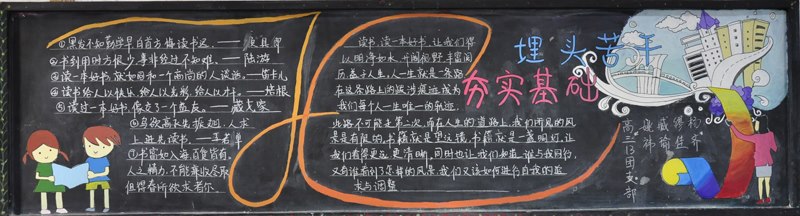 ①黑发不知勤学早白首方悔读书迟。——颜真卿
②书到用时方恨少事非经过不知难。——陆游
③读一本好书,就如同和一个高尚的人谈话。——笛卡儿
④读书给人以快乐,给人以光彩,给人以才干。——培根
⑤读过一本好书,像交了一个益友。——臧克家
⑥鸟欲高飞先振翅,人求
上进先读书。——李若禅
⑦书富如入海,百货皆有,
人之精力,不能兼收尽取,
但得春所欲求者尔。
读书,读一本好书,让我们得
以明净如水,开阔视野,丰富阅
历,益于人生,人生就是一条路,
在这条路上的跋涉痕迹成为
我们每个人一生唯一的轨迹,
此路不可能走第二次,而在人生的道路上,我们所见的风
景是有限的,书籍就是望远镜,书籍就是一盏明灯,让
我们看得更远、更清晰。同时也让我们知道,谁与我同行,
又有谁看到了怎样的风景,我们又该如何进行自我的追
求与调整
埋头苦干
夯实基础
高三13团支部